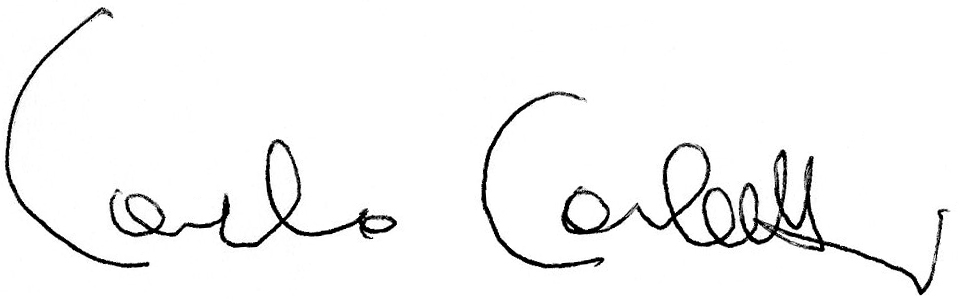 Carlo Carletti